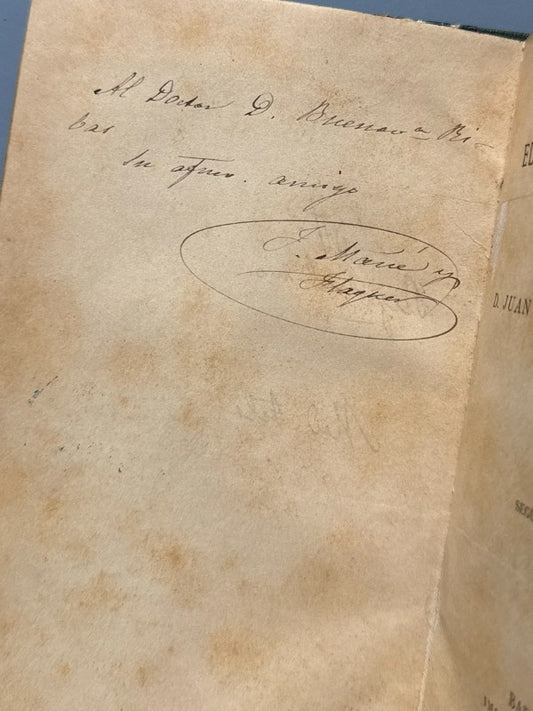 Al Doctor D. Buenav.a Ri-
bas
Su afmo. amigo
J. Mañé y
Flaquer
EL
D. JUAN
SEGU
BAR